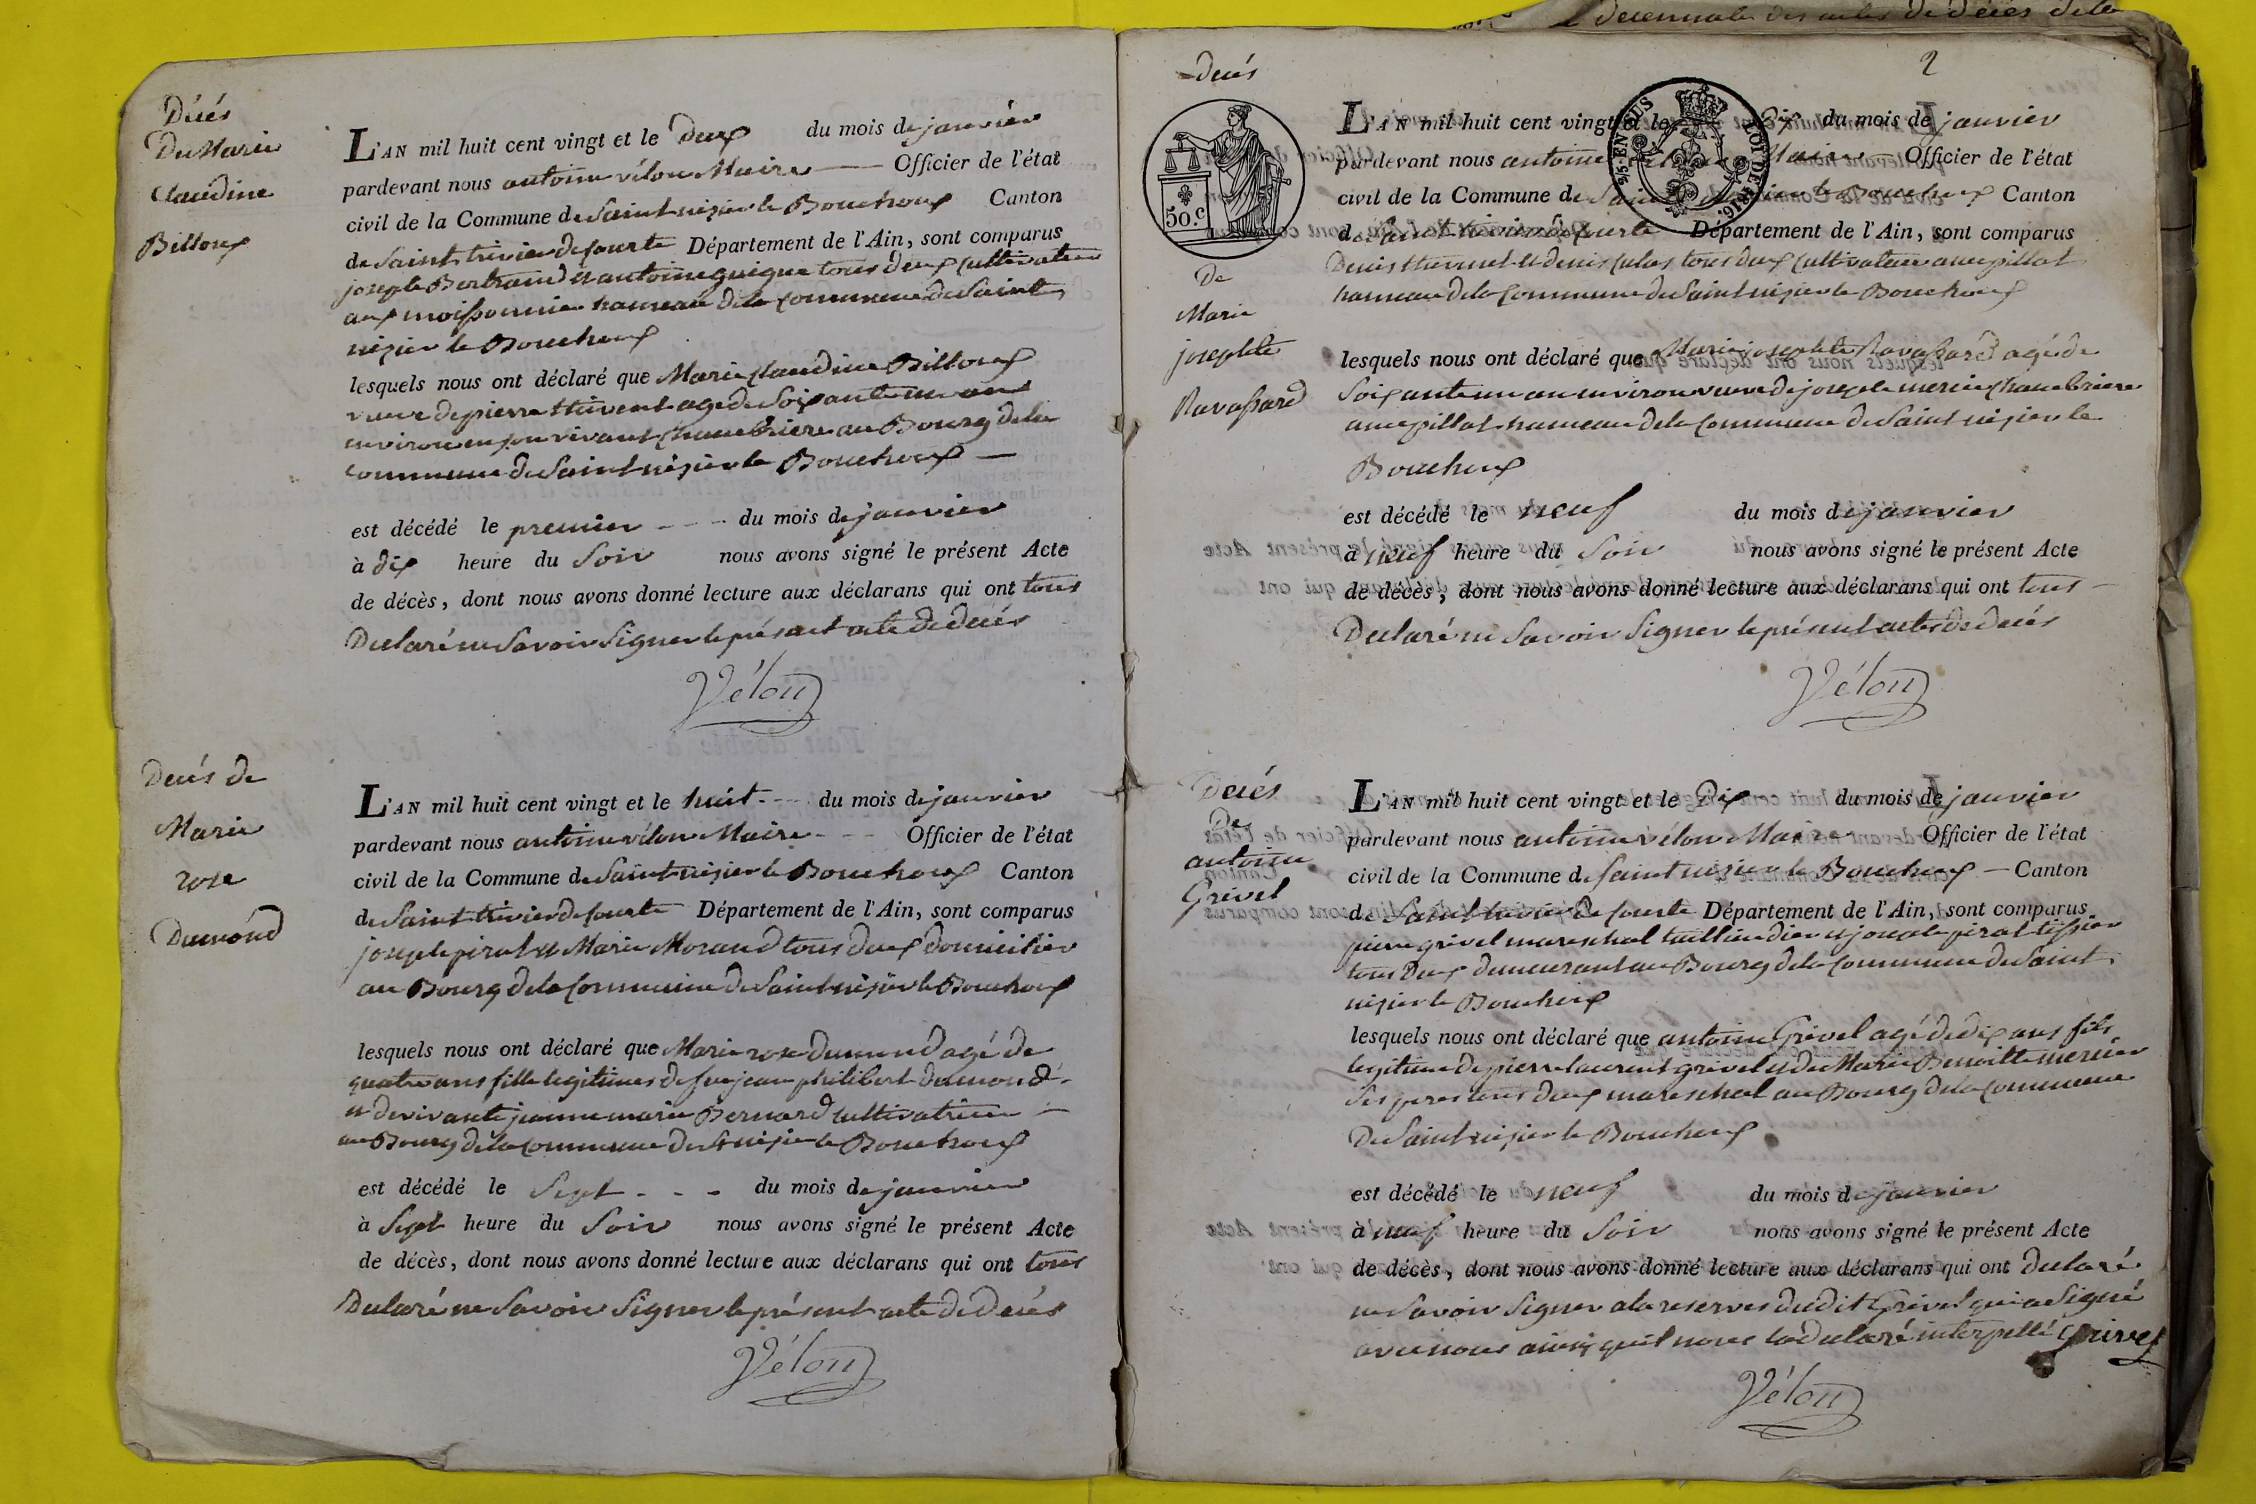 Décés
De Marie
Claudine
Billoux
L'AN mil huit cent vingt et le Deux du mois de janvier
pardevant nous antoine vélon Maire Officier de l'état
civil de la Commune de Saint nizier le Bouchoux Canton
de Saint trivier de Courte Département de l'Ain, sont comparus
joseph Bertrand et antoine guigue tous deux Cultivateur
aux moissonnier hameau de la Commune de Saint
nizier le Bouchoux
lesquels nous ont déclaré que Marie Claudine Billoux
veuve de pierre thivent agé de Soixante un ans
environ en son vivant Chambriere au Bourg de la
commune de Saint nizier le Bouchoux
est décédé le premier du mois de janvier
à dix heure du Soir nous avons signé le présent Acte
de décès, dont nous avons donné lecture aux déclarans qui ont tous
Declaré ne Savoir Signer le présent acte de decés
Vélon
Decés de
Marie
rose
Dumond
L'AN mil huit cent vingt et le huit du mois de janvier
pardevant nous antoine vélon Maire Officier de l'état
civil de la Commune de Saint nizier le Bouchoux Canton
de Saint trivier de Courte Département de l'Ain, sont comparus
joseph piral et Marie Morand tous deux domicilier
au Bourg de la Commune de Saint nizier le Bouchoux
lesquels nous ont déclaré que Marie rose dumond agé de
quatre ans fille legitimes de feu jean philibert dumond
et de vivante jeanne marie Bernard cultivatrice
au Bourg de la Commune de St nizier le Bouchoux
est décédé le Sept du mois de janvier
à Sept heure du Soir nous avons signé le présent Acte
de décès, dont nous avons donné lecture aux déclarans qui ont tous
Declaré ne Savoir Signer le présent acte de Decés
Vélon
decennale des actes de Décés de la
2
Decés
50.c
De
Marie
josephte
Ravassard
L'AN mil huit cent vingt et le Dix du mois de janvier
pardevant nous antoine Maire Officier de l'état
civil de la Commune de Saint nizier le Bouchoux Canton
de Saint trivier de Courte Département de l'Ain, sont comparus
Denis thevenet et denis Culas tous deux Cultivateur au epillat
hameau de la Commune de Saint nizier le Bouchoux
lesquels nous ont déclaré que Marie josephte Ravassard agé de
Soixante un an environ veuve de joseph mercier Chambriere
au epillat hameau de la Commune de Saint nizier le
Bouchoux
est décédé le neuf du mois de janvier
à neuf heure du Soir nous avons signé le présent Acte
de décès, dont nous avons donné lecture aux déclarans qui ont tous
Declaré ne Savoir Signer le présent acte de Decés
Vélon
Decés
De
antoine
Grivel
L'AN mil huit cent vingt et le Dix du mois de janvier
pardevant nous antoine vélon Maire Officier de l'état
civil de la Commune de Saint nizier le Bouchoux Canton
de Saint trivier de Courte Département de l'Ain, sont comparus
pierre grivel mareschal taillandier et joseph piral tissier
tous Deux demeurant au Bourg de la Commune de Saint
nizier le Bouchoux
lesquels nous ont déclaré que antoine Grivel agé de dix ans fils
legitime de pierre laurent grivel et de Marie Benoitte mercier
Ses peres tous deux mareschal au Bourg de la Commune
De Saint nizier le Bouchoux
est décédé le neuf du mois de janvier
à neuf heure du Soir nous avons signé le présent Acte
de décès, dont nous avons donné lecture aux déclarans qui ont declaré
ne Savoir Signer a la reserves du dit Grivel qui a Signé
avec nous ainsi quil nous la declaré interpellé Grivel
Vélon